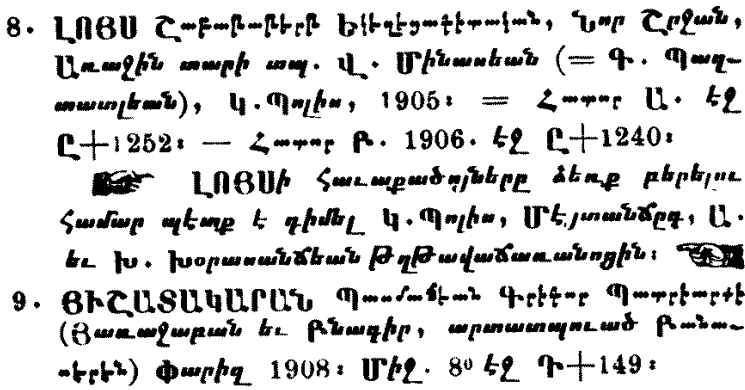 8. ԼՈՅՍ Շաբաթաթերթ Եկեղեցագիտական, Նոր Շրջան,
Առաջին տարի տպ. Վ. Մինասեան (= Գ. Պաղ-
տատլեան), Կ.Պոլիս, 1905։ = Հատոր Ա. էջ
Ը+1252։ — Հատոր Բ. 1906. էջ Ը+1240։
ԼՈՅՍի Հաւաքածոյները ձեռք բերելու
համար պէտք է դիմել Կ.Պոլիս, Մէյտանճըգ, Ա.
եւ Խ. Խօրասանճեան Թղթավաճառանոցին։
9. ՅԻՇԱՏԱԿԱՐԱՆ Պատմաճէան Գրիգոր Պատրիարքի
(Յառաջաբան եւ Բնագիր, արտատպուած Բանա-
սէրէն) Փարիզ 1908։ Միջ. 8⁰ էջ Դ+149։